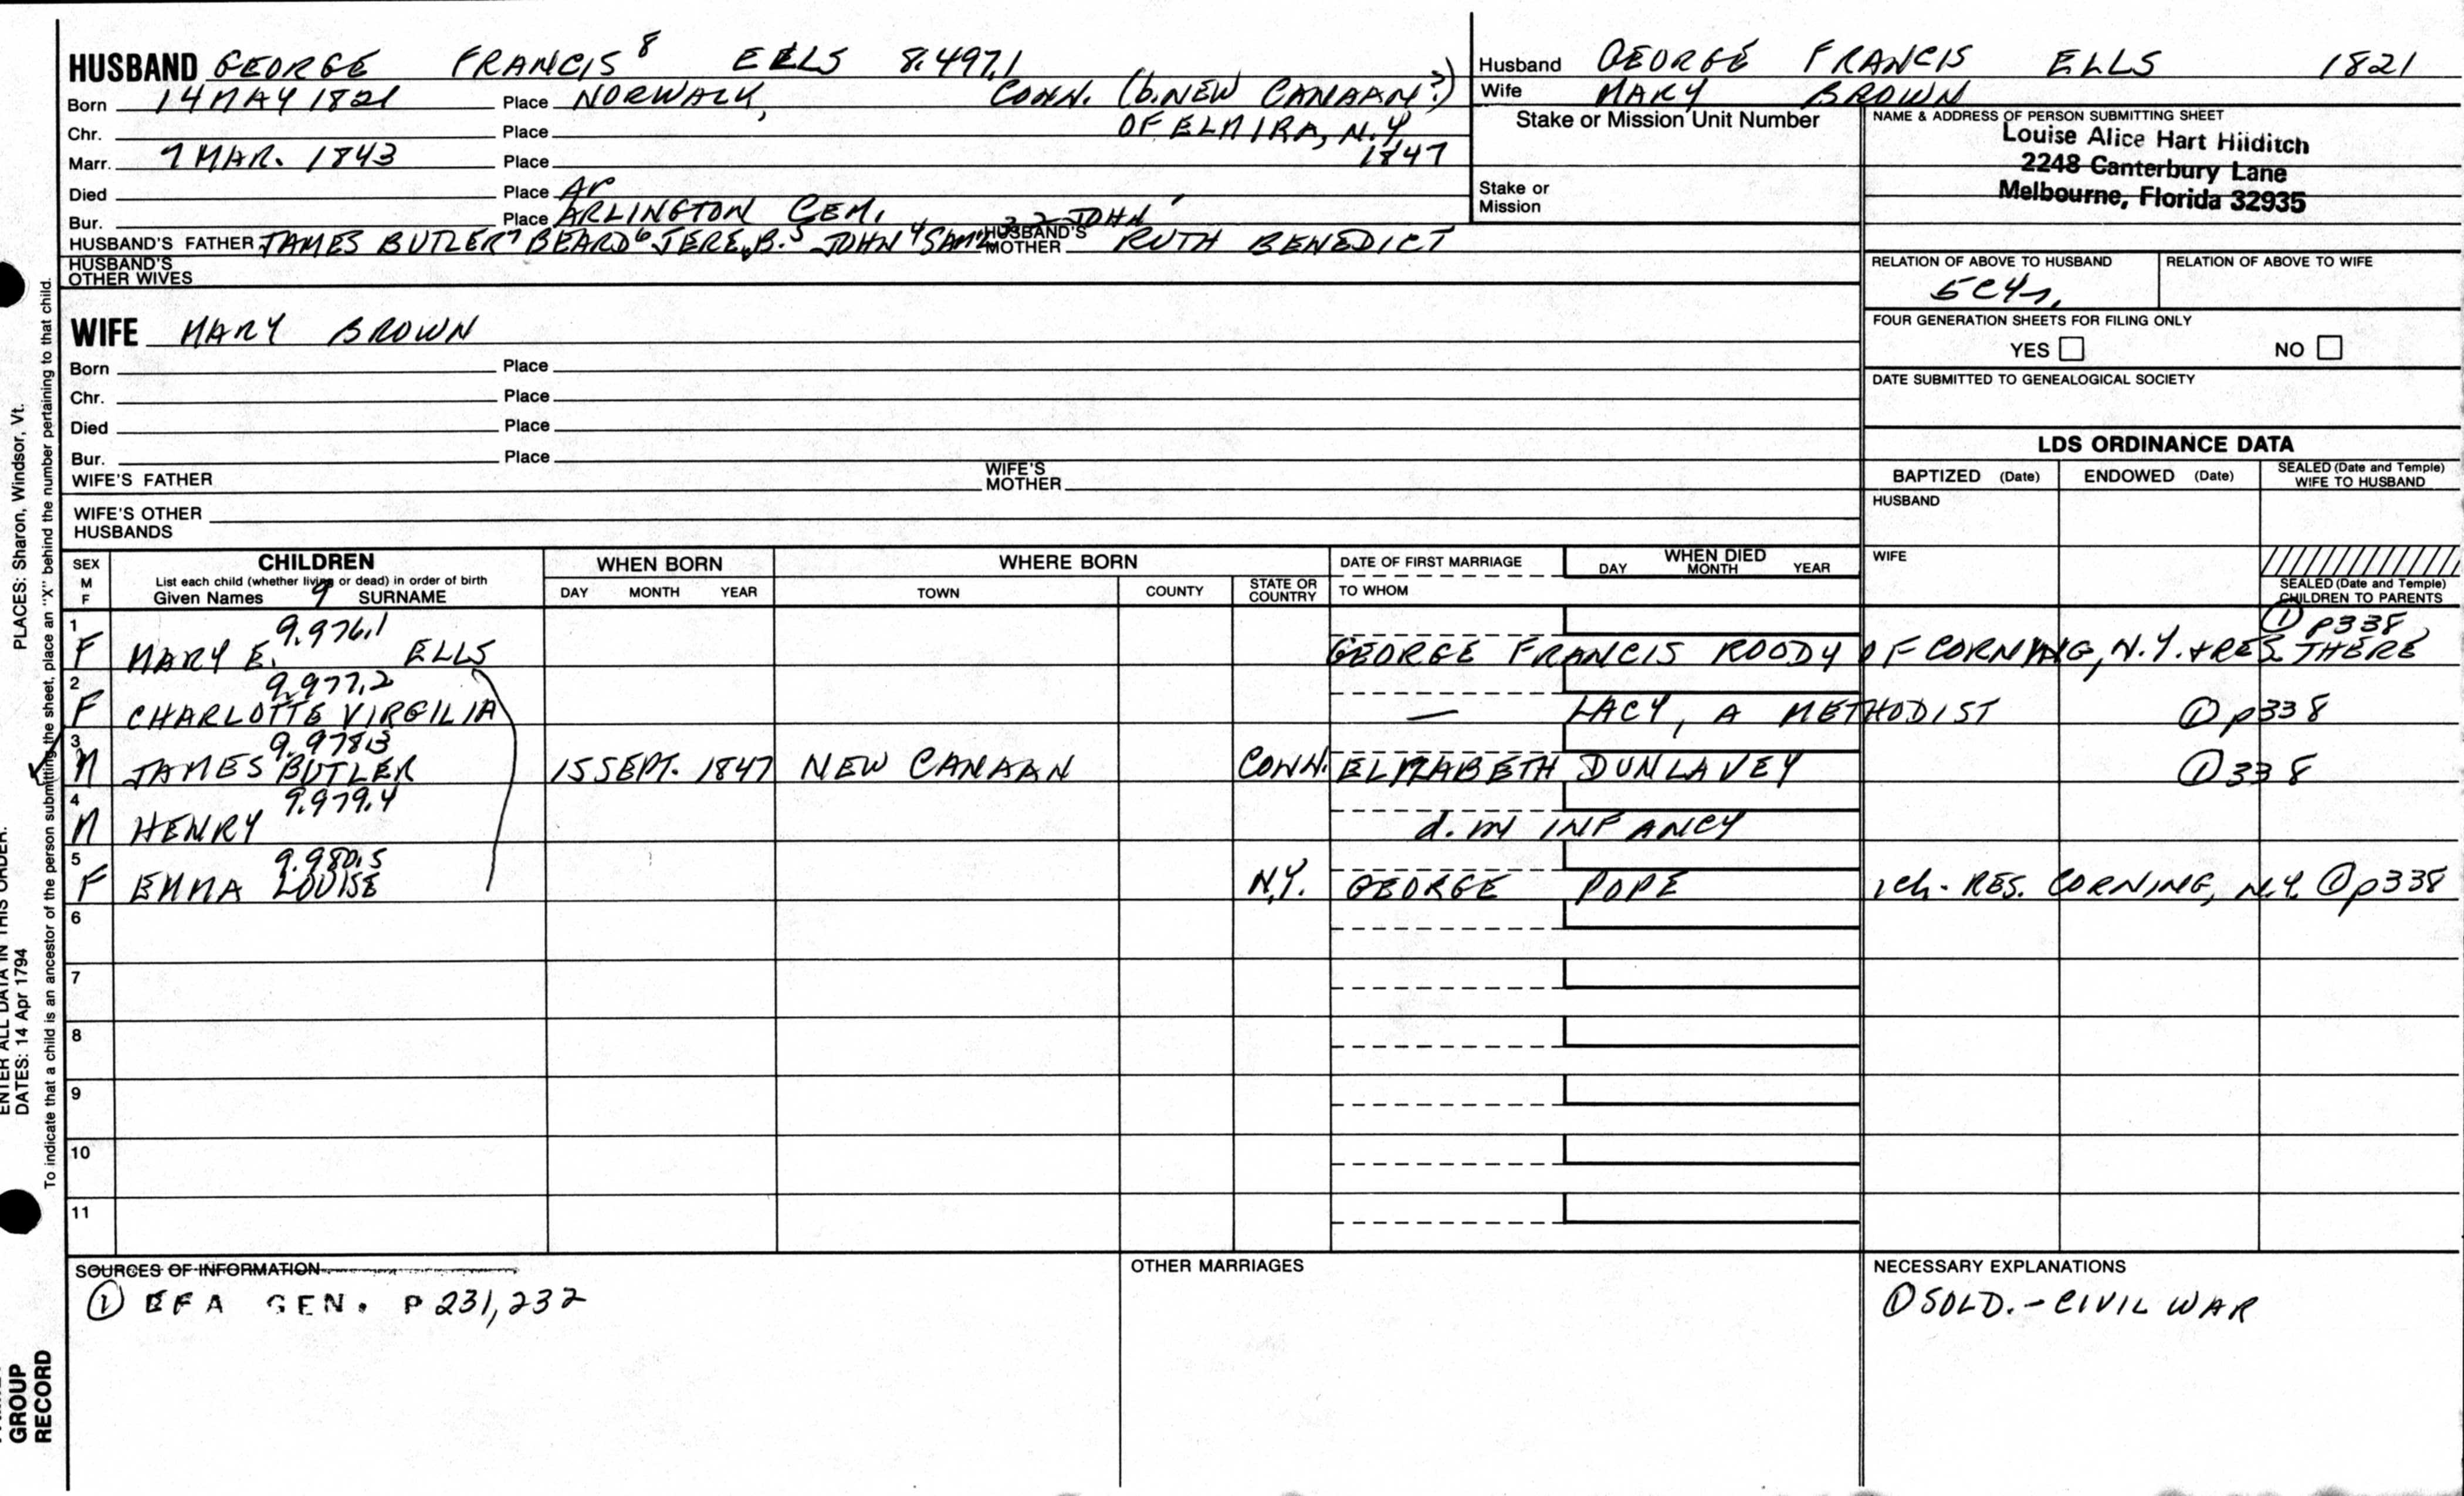 HUSBAND GEORGE FRANCIS 8 EELLS 8.497.1
Born 14 MAY 1821 Place NORWALK, CONN. (b. NEW CANAAN?)
Chr. Place OF ELMIRA, N.Y.
Marr. 7 MAR. 1843 Place 1847
Died Place Ar
Bur. Place ARLINGTON CEM.
HUSBAND'S FATHER JAMES BUTLER 7 BEARD 6 JERE. B. 5 JOHN 4 SAML 3 2 JOHN 1 HUSBAND'S MOTHER RUTH BENEDICT
HUSBAND'S OTHER WIVES
WIFE MARY BROWN
Born Place
Chr. Place
Died Place
Bur. Place
WIFE'S FATHER WIFE'S MOTHER
WIFE'S OTHER HUSBANDS
Husband GEORGE FRANCIS ELLS 1821
Wife MARY BROWN
Stake or Mission Unit Number
Stake or Mission
NAME & ADDRESS OF PERSON SUBMITTING SHEET
Louise Alice Hart Hilditch
2248 Canterbury Lane
Melbourne, Florida 32935
RELATION OF ABOVE TO HUSBAND RELATION OF ABOVE TO WIFE
5C4
FOUR GENERATION SHEETS FOR FILING ONLY
YES NO
DATE SUBMITTED TO GENEALOGICAL SOCIETY
LDS ORDINANCE DATA
BAPTIZED (Date) ENDOWED (Date) SEALED (Date and Temple) WIFE TO HUSBAND
HUSBAND
WIFE
SEALED (Date and Temple) CHILDREN TO PARENTS
SEX M F
CHILDREN
List each child (whether living or dead) in order of birth
Given Names 9 SURNAME
WHEN BORN
DAY MONTH YEAR
WHERE BORN
TOWN COUNTY STATE OR COUNTRY
DATE OF FIRST MARRIAGE
TO WHOM
WHEN DIED
DAY MONTH YEAR
1 9.976.1 ① p338
F MARY E. ELLS GEORGE FRANCIS ROODY OF CORNING, N.Y. + RES. THERE
2 9.977.2
F CHARLOTTE VIRGILIA — LACY, A METHODIST ① p338
3 9.978.3
M JAMES BUTLER 15 SEPT. 1847 NEW CANAAN CONN. ELIZABETH DUNLAVEY ① 338
4 9.979.4
M HENRY d. in INFANCY
5 9.980.5
F EMMA LOUISE N.Y. GEORGE POPE 1ch. RES. CORNING, N.Y. ① p338
6
7
8
9
10
11
SOURCES OF INFORMATION
① EFA GEN. P 231, 232
OTHER MARRIAGES
NECESSARY EXPLANATIONS
① SOLD. - CIVIL WAR
PLACES: Sharon, Windsor, Vt.
To indicate that a child is an ancestor of the person submitting the sheet, place an "X" behind the number pertaining to that child.
ENTER ALL DATA IN THIS ORDER:
DATES: 14 Apr 1794
GROUP
RECORD